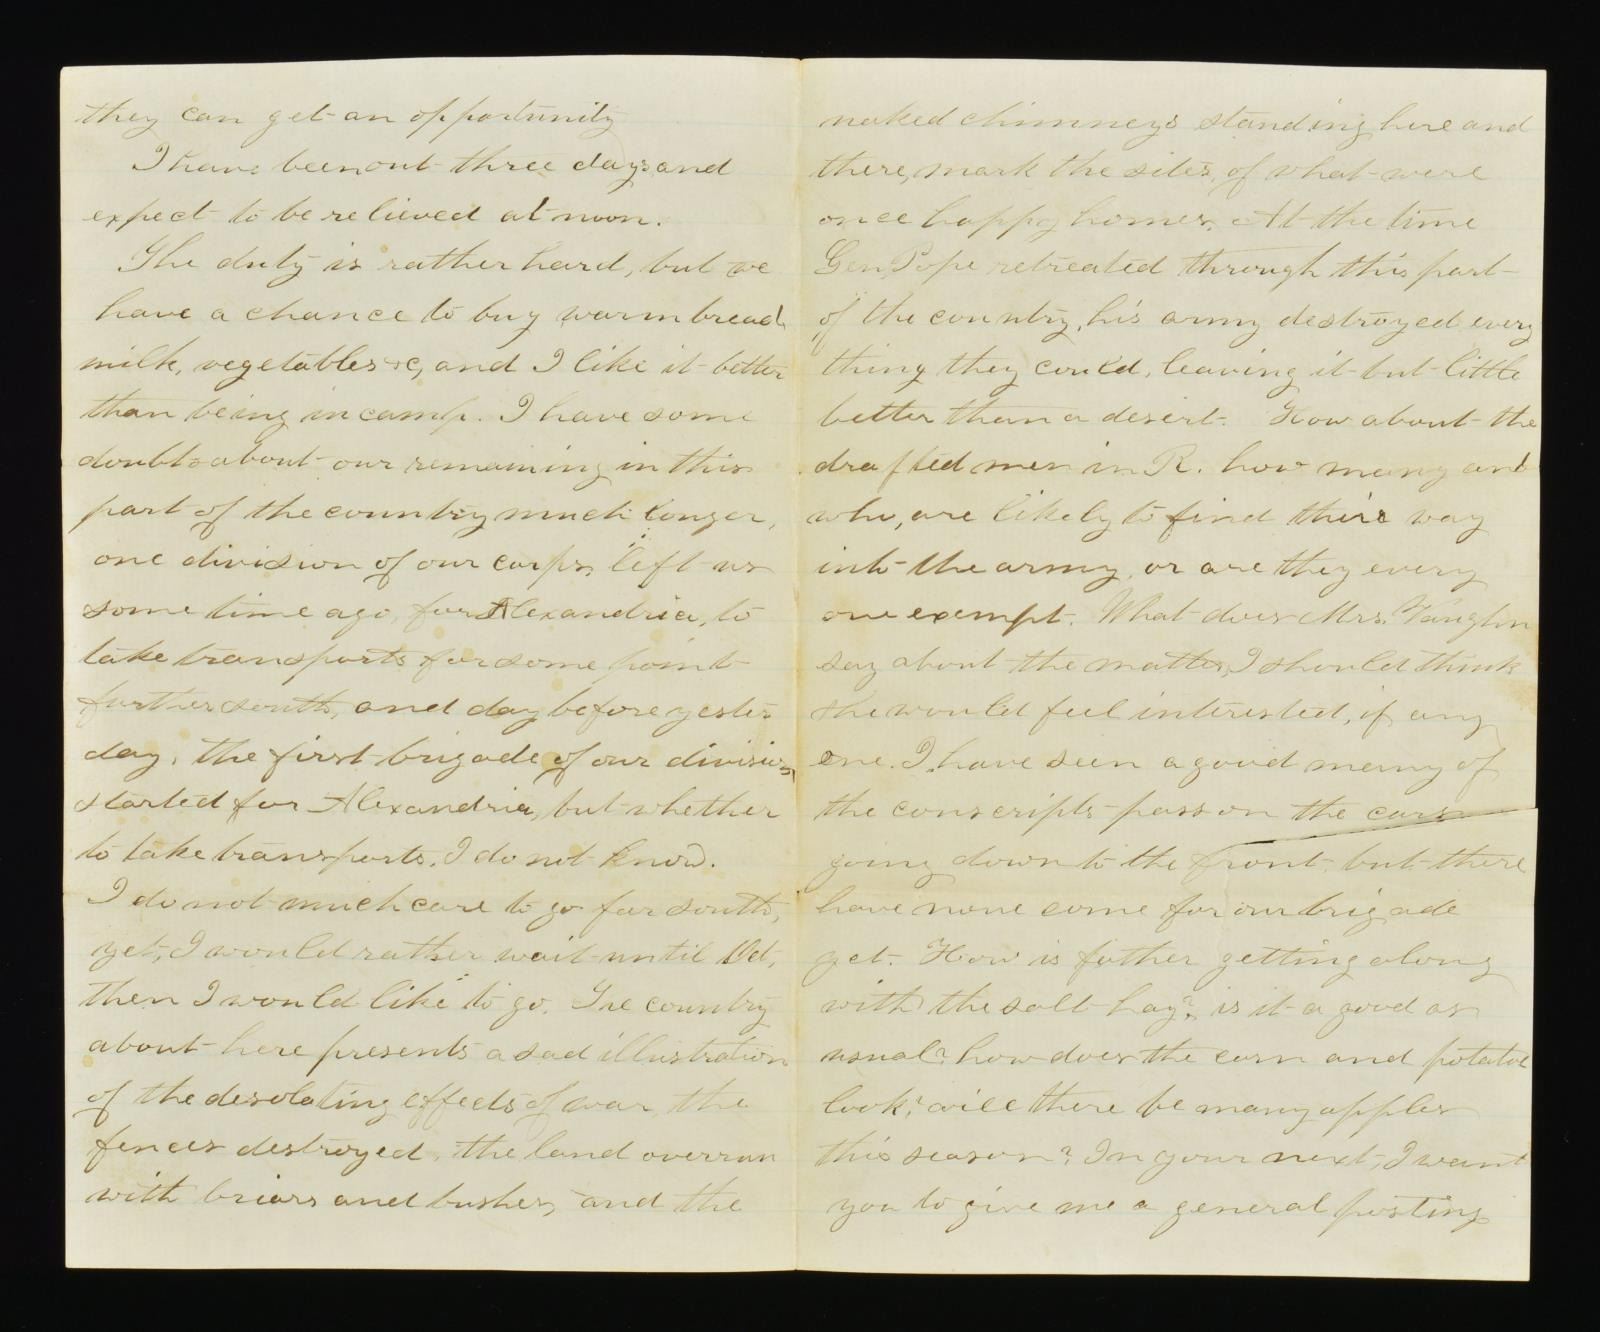 they can get an opportunity
I have been out three days and
expect to be relieved at noon.
The duty is rather hard, but we
have a chance to buy warm bread,
milk, vegetables &c, and I like it better
than being in camp. I have some
doubts about our remaining in this
part of the country much longer,
one division of our corps, left us
some time ago, for Alexandria, to
take transports for some point
further south, and day before yester
day, the first brigade of our division,
started for Alexandria, but whether
to take transports, I do not know.
I do not much care to go far south,
yet, I would rather wait until Oct,
then I would like to go. The country
about here presents a sad illustration
of the desolating effects of war, the
fences destroyed, the land overrun
with briars and bushes, and the
naked chimneys standing here and
there, mark the sites, of what were
once happy homes. At the time
Gen. Pope retreated through this part
of the country, his army destroyed every
thing they could, leaving it but little
better than a desert. How about the
drafted men in R. how many and
who, are likely to find their way
into the army, or are they every
one exempt. What does Mrs. Vaughn
say about the matter, I should think
she would feel interested, if any
one. I have seen a good many of
the conscripts pass on the cars
going down to the front, but there
have none come for our brigade
yet. How is father getting along
with the salt hay? is it a good as
usual? how does the corn and potatoe
look? will there be many apples
this season? In your next, I want
you to give me a general posting